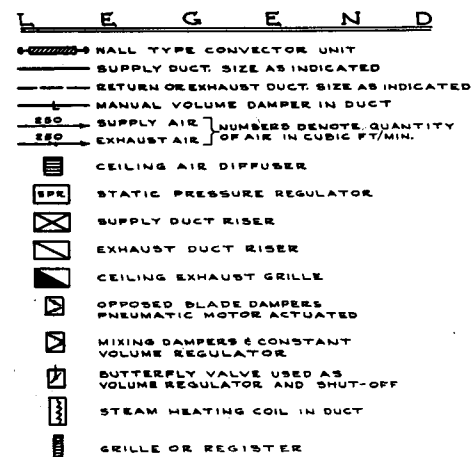 LEGEND
WALL TYPE CONVECTOR UNIT
SUPPLY DUCT. SIZE AS INDICATED
RETURN OR EXHAUST DUCT. SIZE AS INDICATED
MANUAL VOLUME DAMPER IN DUCT
250 SUPPLY AIR
250 EXHAUST AIR
NUMBERS DENOTE QUANTITY
OF AIR IN CUBIC FT/MIN.
CEILING AIR DIFFUSER
SPR STATIC PRESSURE REGULATOR
SUPPLY DUCT RISER
EXHAUST DUCT RISER
CEILING EXHAUST GRILLE
OPPOSED BLADE DAMPERS
PNEUMATIC MOTOR ACTUATED
MIXING DAMPERS & CONSTANT
VOLUME REGULATOR
BUTTERFLY VALVE USED AS
VOLUME REGULATOR AND SHUT-OFF
STEAM HEATING COIL IN DUCT
GRILLE OR REGISTER